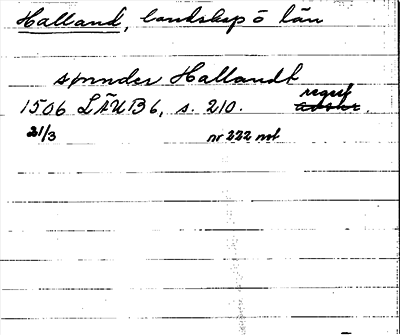 Halland, landskap o län
sønnder Hallandt
1506 LÄUB6, s. 210. regest
21/3 nr 222 not